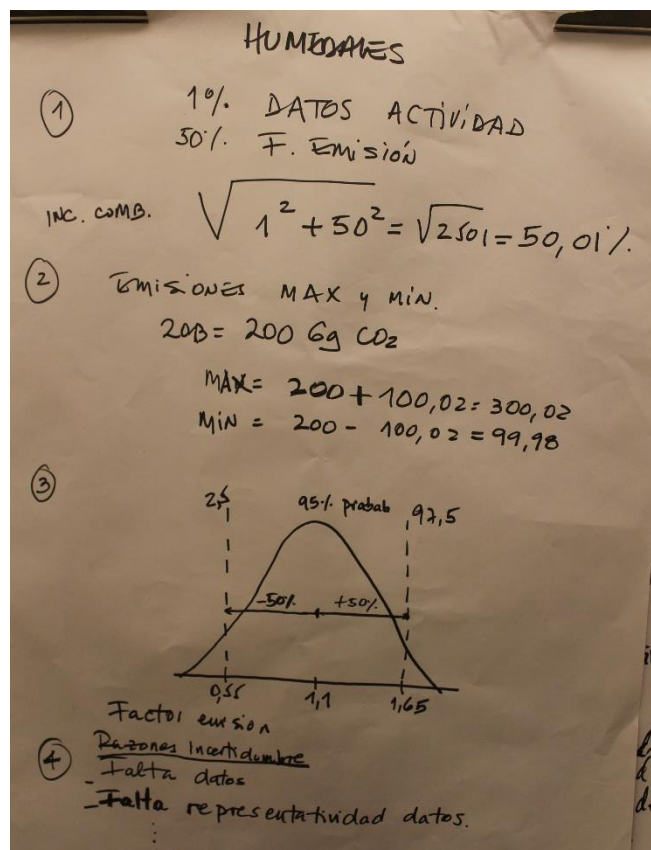 HUMEDALES
① 1% DATOS ACTIVIDAD
50% F. Emisión
INC. COMB. √1² + 50² = √2501 = 50,01%.
② Emisiones MAX y MiN.
20B = 200 Gg CO₂
MAX = 200 + 100,02 = 300,02
MiN = 200 - 100,02 = 99,98
③
2,5 95% probab 97,5
-50% +50%
0,55 1,1 1,65
Factor emision
④ Razones Incertidumbre
- Falta datos
- Falta representatividad datos.
⋮